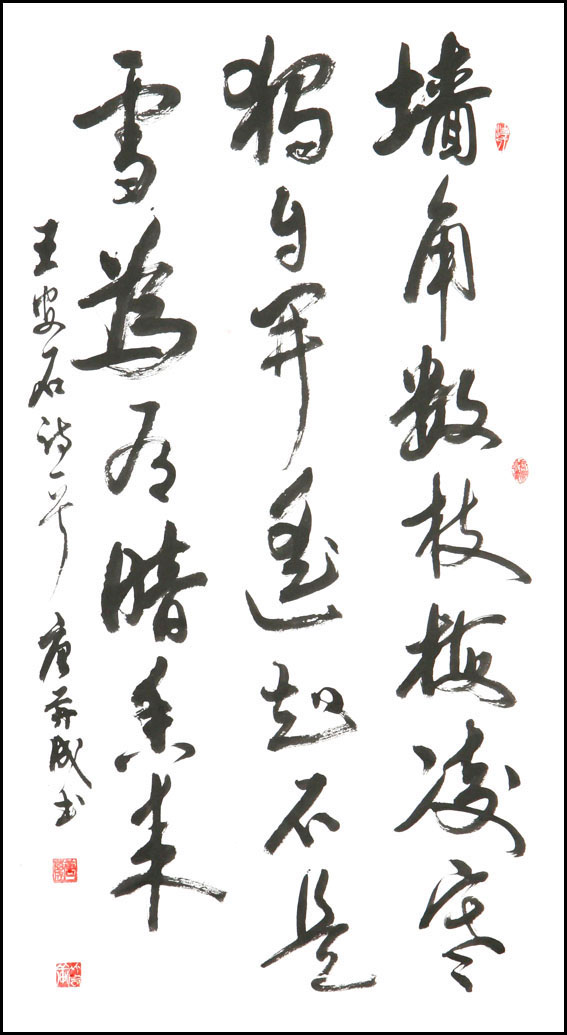 墙角数枝梅凌寒
獨自开遥知不是
雪為有暗香来
王安石诗一首 唐成书